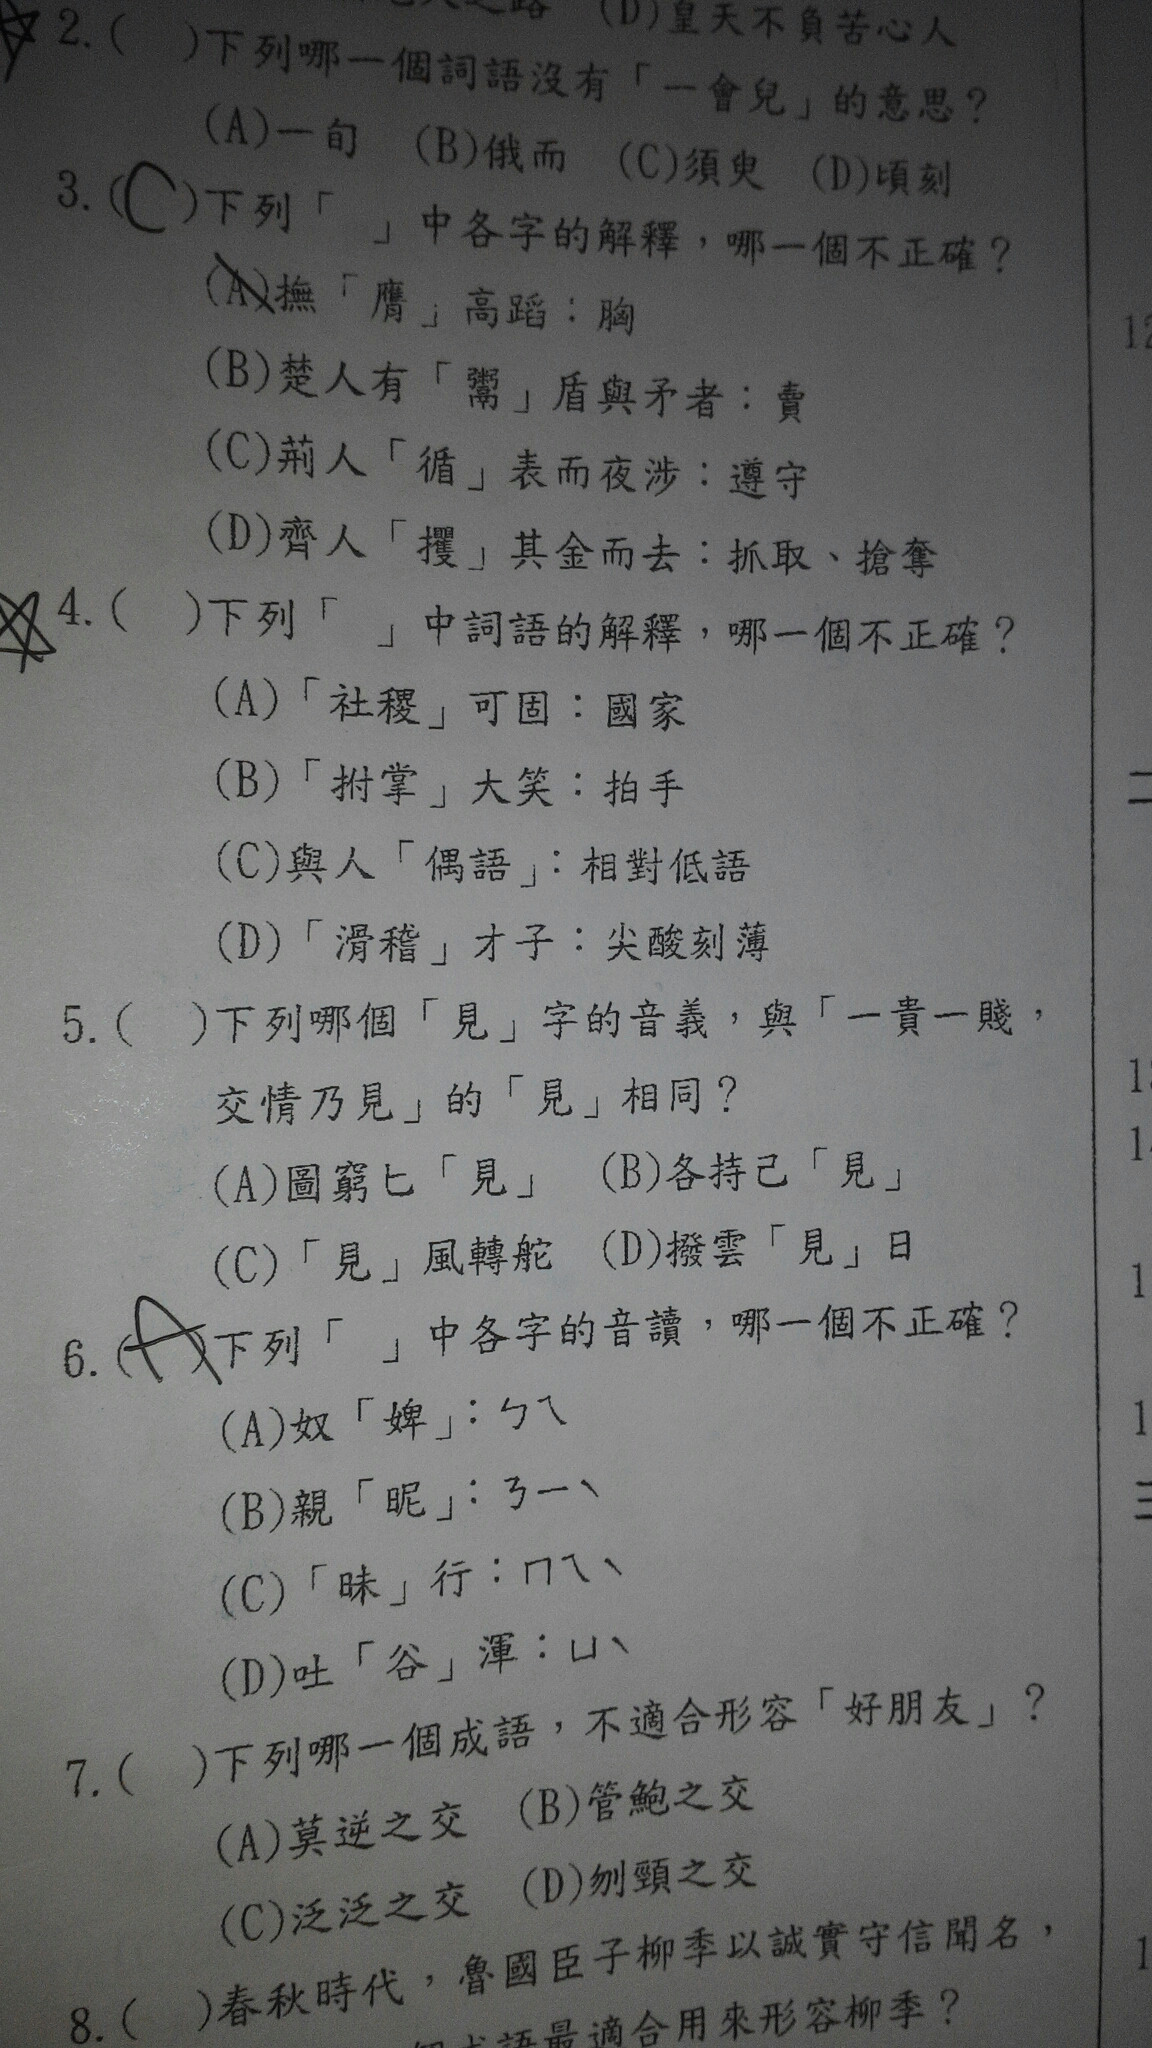 之路 (D)皇天不負苦心人
2.( )下列哪一個詞語沒有「一會兒」的意思？
(A)一旬 (B)俄而 (C)須臾 (D)頃刻
3.(C)下列「 」中各字的解釋，哪一個不正確？
(A)撫「膺」高蹈：胸
(B)楚人有「鬻」盾與矛者：賣
(C)荊人「循」表而夜涉：遵守
(D)齊人「攫」其金而去：抓取、搶奪
4.( )下列「 」中詞語的解釋，哪一個不正確？
(A)「社稷」可固：國家
(B)「拊掌」大笑：拍手
(C)與人「偶語」：相對低語
(D)「滑稽」才子：尖酸刻薄
5.( )下列哪個「見」字的音義，與「一貴一賤，
交情乃見」的「見」相同？
(A)圖窮匕「見」 (B)各持己「見」
(C)「見」風轉舵 (D)撥雲「見」日
6.(A)下列「 」中各字的音讀，哪一個不正確？
(A)奴「婢」：ㄅㄟ
(B)親「昵」：ㄋㄧˋ
(C)「昧」行：ㄇㄟˋ
(D)吐「谷」渾：ㄩˋ
7.( )下列哪一個成語，不適合形容「好朋友」？
(A)莫逆之交 (B)管鮑之交
(C)泛泛之交 (D)刎頸之交
8.( )春秋時代，魯國臣子柳季以誠實守信聞名，
個成語最適合用來形容柳季？
12
二
1
1
1
1
三
1